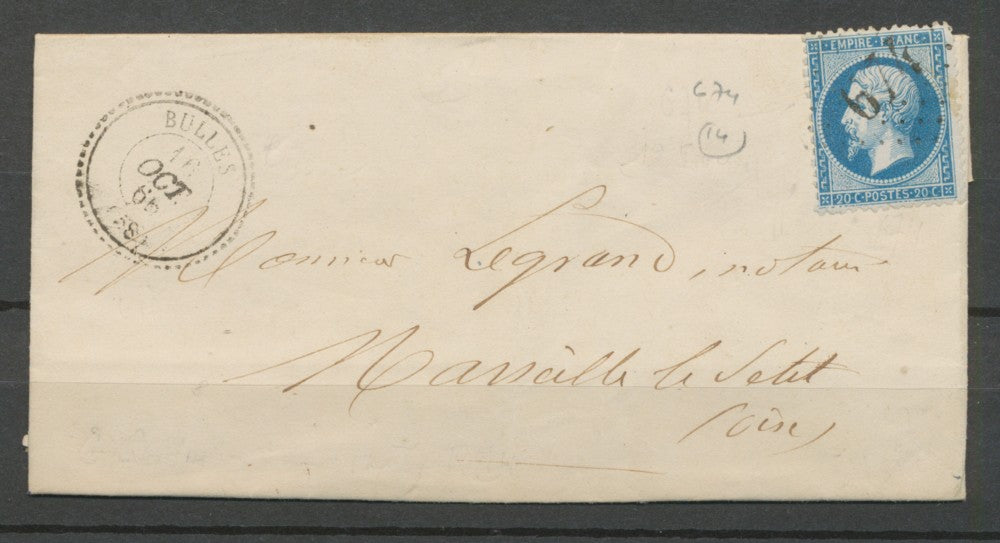 BULLES
16
OCT
66
(58)
674
14
EMPIRE · FRANC ·
674
20 C · POSTES · 20 C
Monsieur Legrand, notaire
Marseille le Petit
(oise)